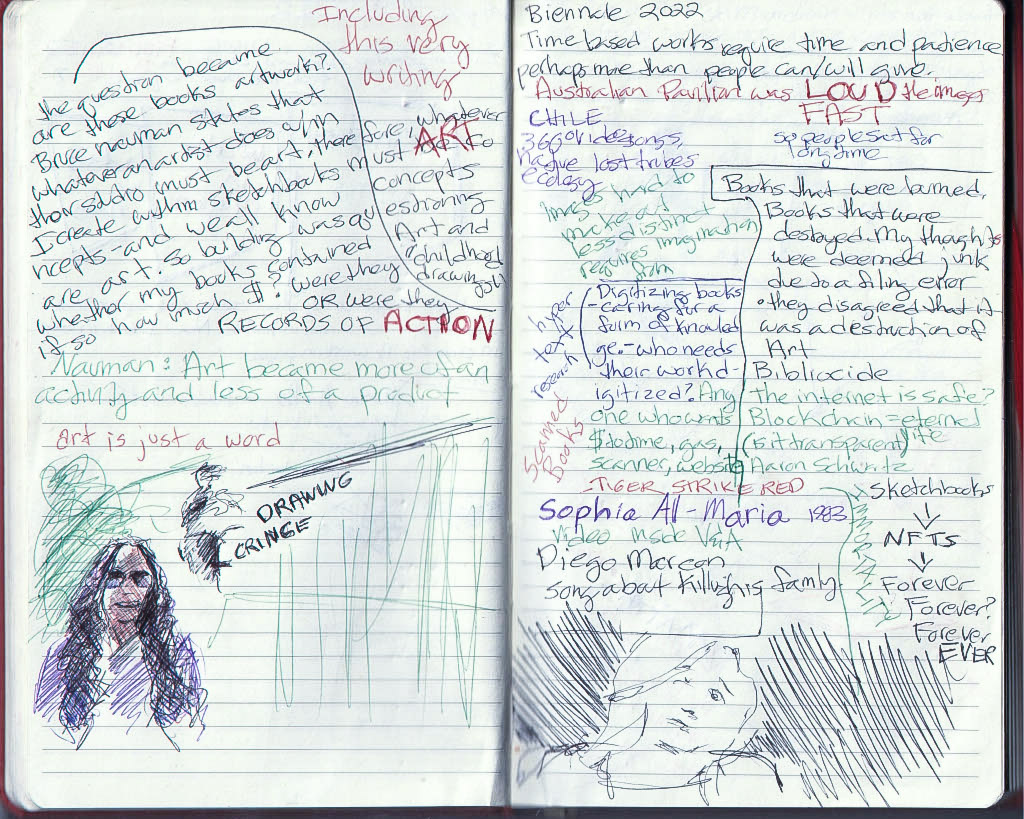 Including
this very
writing
the question became
are these books artwork?
Bruce Nauman states that
whatever an artist does w/in
their studio must be art, therefore, whatever
I create within sketchbooks must ART to
ncepts - and we all know
are art. So building was qu
whether my books contained
how much $? were they
if so
concepts
estioning
Art and
childhood
drawing
OR were they
RECORDS OF ACTION
Nauman: Art became more of an
activity and less of a product
Art is just a word
DRAWING
CRINGE
Biennale 2022
Time based works require time and patience
perhaps more than people can/will give.
Australian Pavilion was LOUD the images
FAST
CHILE
360° videosongs,
native lost tribes
ecology
so people sat for
long time
images hard to
make out
less distinct
requires imagination
from
Books that were burned.
Books that were
destoyed. My thoughts
were deemed junk
due to a filing error
• they disagreed that it
was a destruction of
Art
Bibliocide
the internet is safe?
Blockchain = eternal
life
(is it transparent)
Aaron Schwrtz
hyper
text
research
Scanned
Books
Digitizing books
- caring for a
form of knowled
ge. - who needs
their work d-
igitized? Any
one who wants
$ to time, gas,
scanner, website
TIGER STRIKE RED
Sophia Al-Maria 1983
video inside V&A
Diego Marcon
song about killing his family
Sketchbooks
↓
NFTS
↓
Forever
Forever?
Forever
EVER